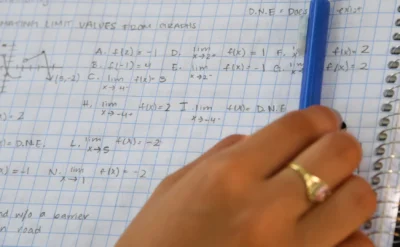 D.N.E = Does
LIMIT VALUES FROM GRAPHS
A. f(2) = -1 D. lim x→2⁺ f(x) = 1 f(x) = 2
B. f(-1) = 4 E. lim x→2⁻ f(x) = -1 G. f(x) = 2
C. lim x→4⁻ f(x) = 5
(0,-2)
H. lim x→-4⁻ f(x) = 2 I lim x→-4 f(x) = D.N.E
) = 2
) = D.N.E. L. lim x→5 f(x) = -2
) = -1 N. lim x→1 f(x) = -2
w/o a barrier
road